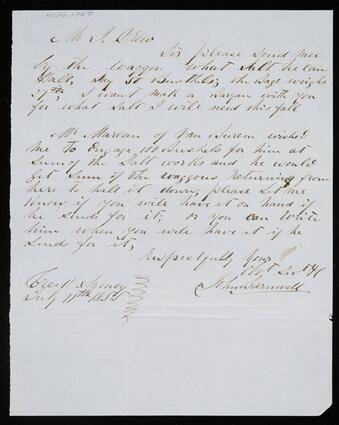 4026.1747
Mr J. Drew
Sir please send me
by the waggon what salt he can
Hall, Say 50 Bushels; the Bags weighs
27 lbs, I want mak a bargan with you
for what Salt I will need this fall
Mr Marean of Van Buren wished
me to Engage 100 Bushels for him at
Sum of the Salt works and he would
Get Sum of the waggons Returning from
here to hall it down; please Let me
Know if you will have it on hand if
he Sends for it; or you can write
him when you will have it if he
Sends for it,
Respectfully Your
Obgt Sert &c
John Barnwell
Creek Agency
July 11th 1852